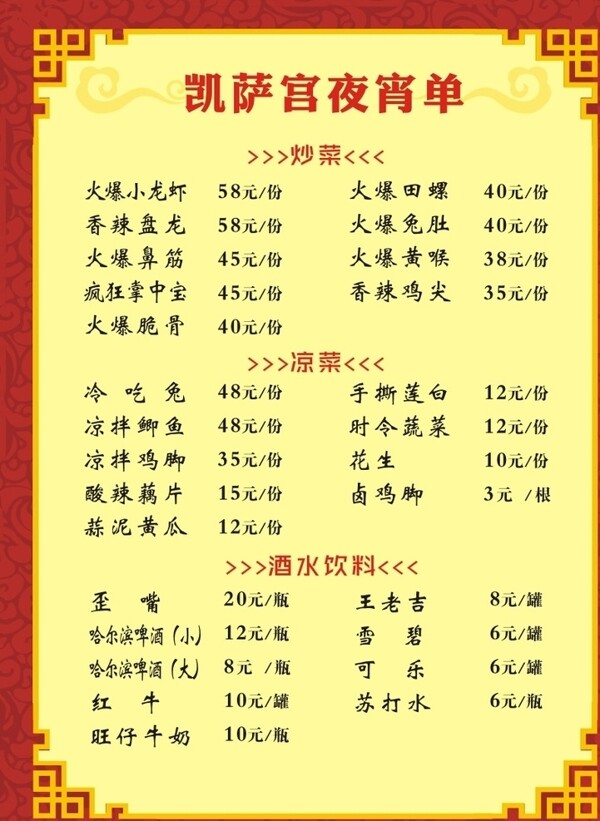 凯萨宫夜宵单
>>>炒菜<<<
火爆小龙虾 58元/份 火爆田螺 40元/份
香辣盘龙 58元/份 火爆兔肚 40元/份
火爆鼻筋 45元/份 火爆黄喉 38元/份
疯狂掌中宝 45元/份 香辣鸡尖 35元/份
火爆脆骨 40元/份
>>>凉菜<<<
冷吃兔 48元/份 手撕莲白 12元/份
凉拌鲫鱼 48元/份 时令蔬菜 12元/份
凉拌鸡脚 35元/份 花生 10元/份
酸辣藕片 15元/份 卤鸡脚 3元 /根
蒜泥黄瓜 12元/份
>>>酒水饮料<<<
歪嘴 20元/瓶 王老吉 8元/罐
哈尔滨啤酒(小) 12元/瓶 雪碧 6元/罐
哈尔滨啤酒(大) 8元 /瓶 可乐 6元/罐
红牛 10元/罐 苏打水 6元/瓶
旺仔牛奶 10元/瓶